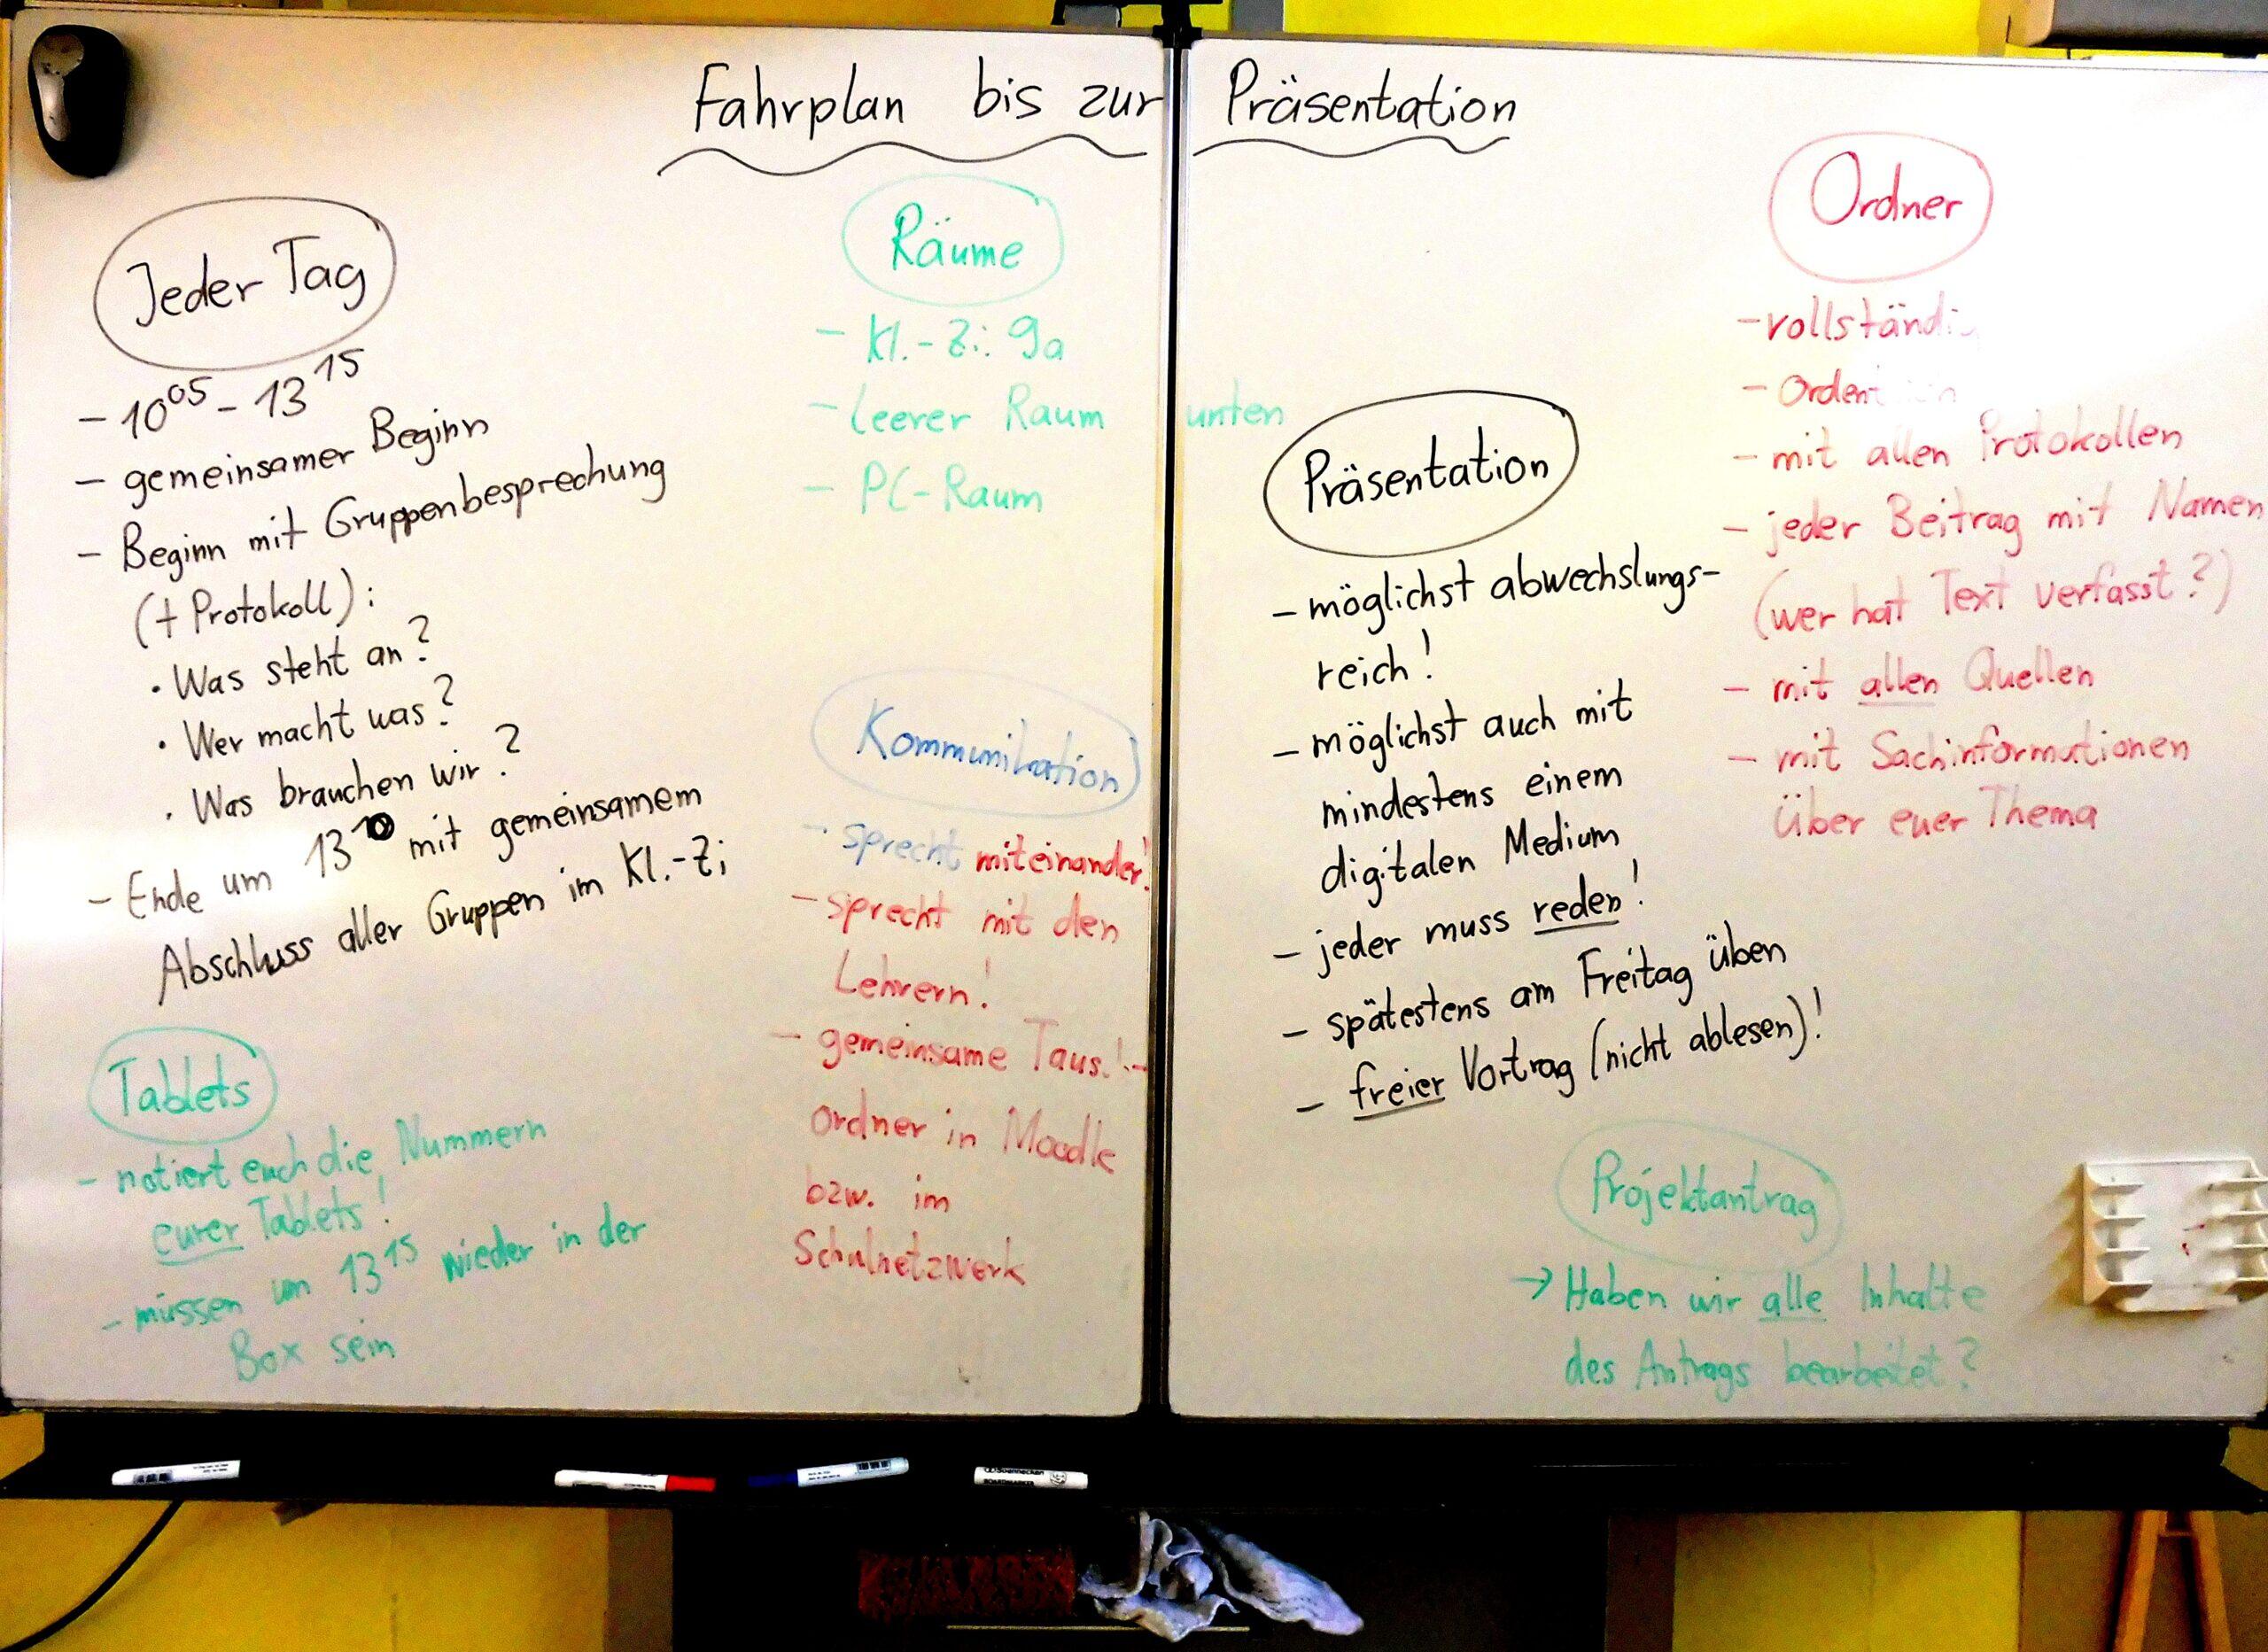 Fahrplan bis zur Präsentation
Jeder Tag
- 10⁰⁵ - 13¹⁵
- gemeinsamer Beginn
- Beginn mit Gruppenbesprechung
(+ Protokoll):
• Was steht an?
• Wer macht was?
• Was brauchen wir?
- Ende um 13¹⁰ mit gemeinsamem
Abschluss aller Gruppen im Kl.-Zi
Tablets
- notiert euch die Nummern
eurer Tablets!
- müssen um 13¹⁵ wieder in der
Box sein
Räume
- Kl.-Zi. 9a
- leerer Raum unten
- PC-Raum
Kommunikation
- sprecht miteinander!
- sprecht mit den
Lehrern!
- gemeinsame Taus.!-
ordner in Moodle
bzw. im
Schulnetzwerk
Präsentation
- möglichst abwechslungs-
reich!
- möglichst auch mit
mindestens einem
digitalen Medium
- jeder muss reden!
- spätestens am Freitag üben
- freier Vortrag (nicht ablesen)!
Projektantrag
→ Haben wir alle Inhalte
des Antrags bearbeitet?
Ordner
- vollständig
- Ordentlich
- mit allen Protokollen
- jeder Beitrag mit Namen
(wer hat Text verfasst?)
- mit allen Quellen
- mit Sachinformationen
Über euer Thema
Soennecken